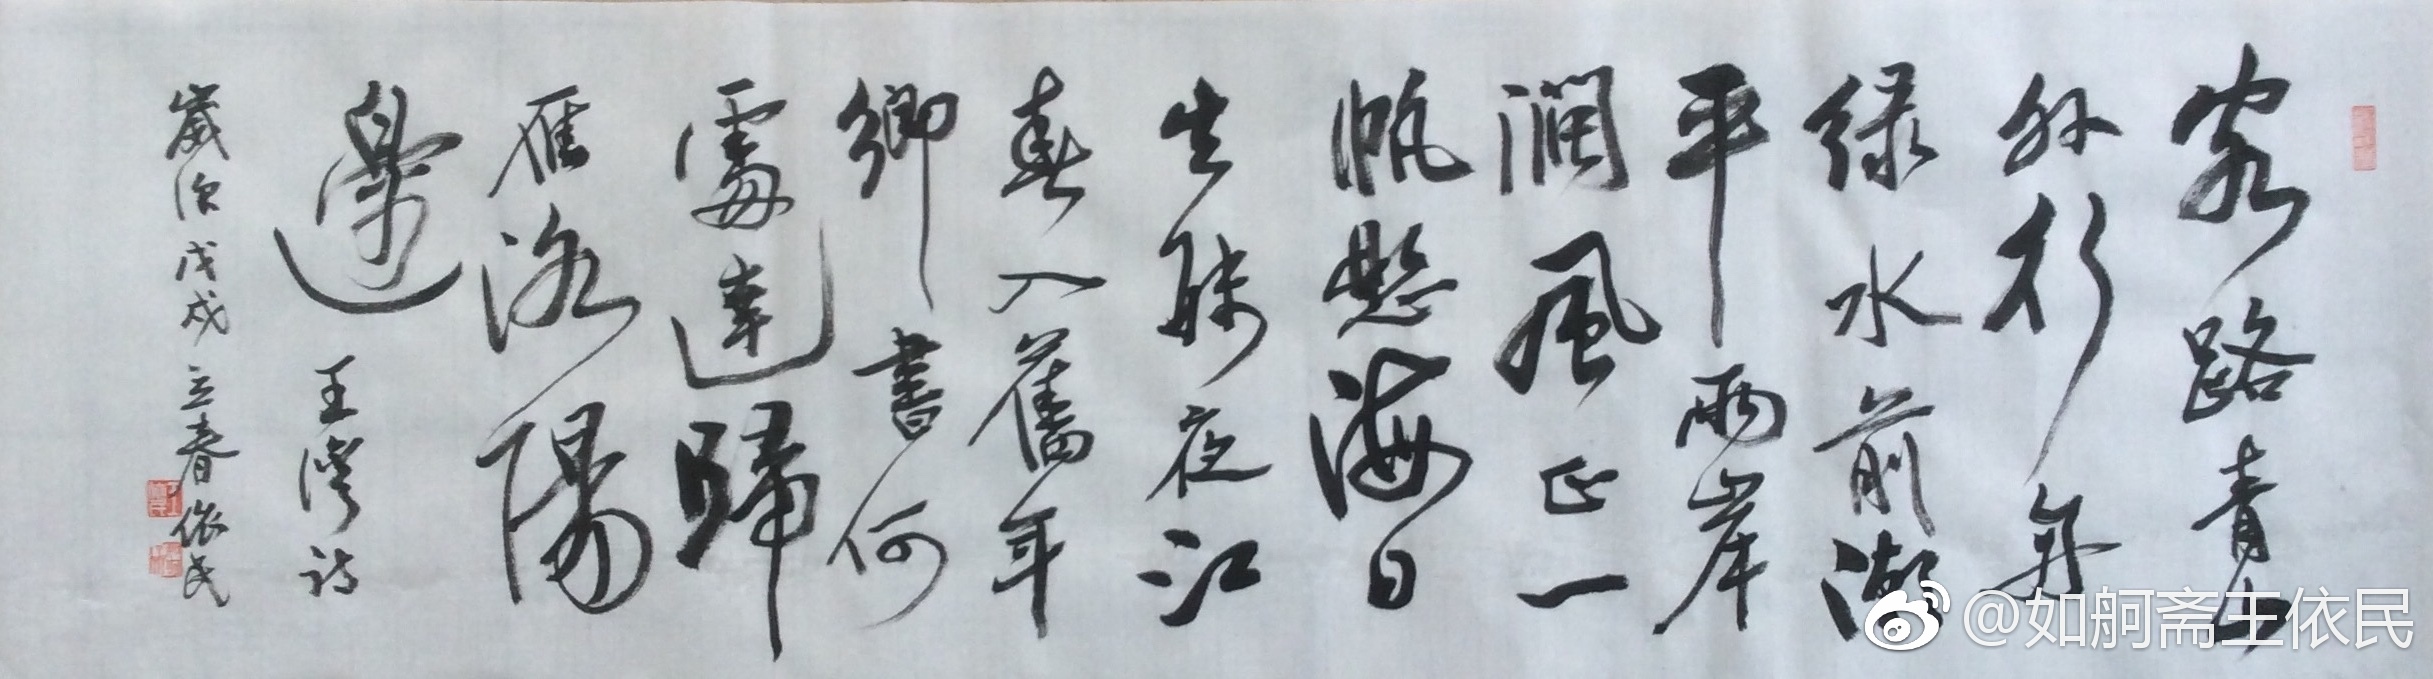 客路青山
外行舟
绿水前湖
平兩岸
濶風正一
帆懸海日
生殘夜江
春入舊年
鄉書何
處達歸
雁洛陽
邊 王灣诗
歲次戊戌立春依民
@如舸斋王依民